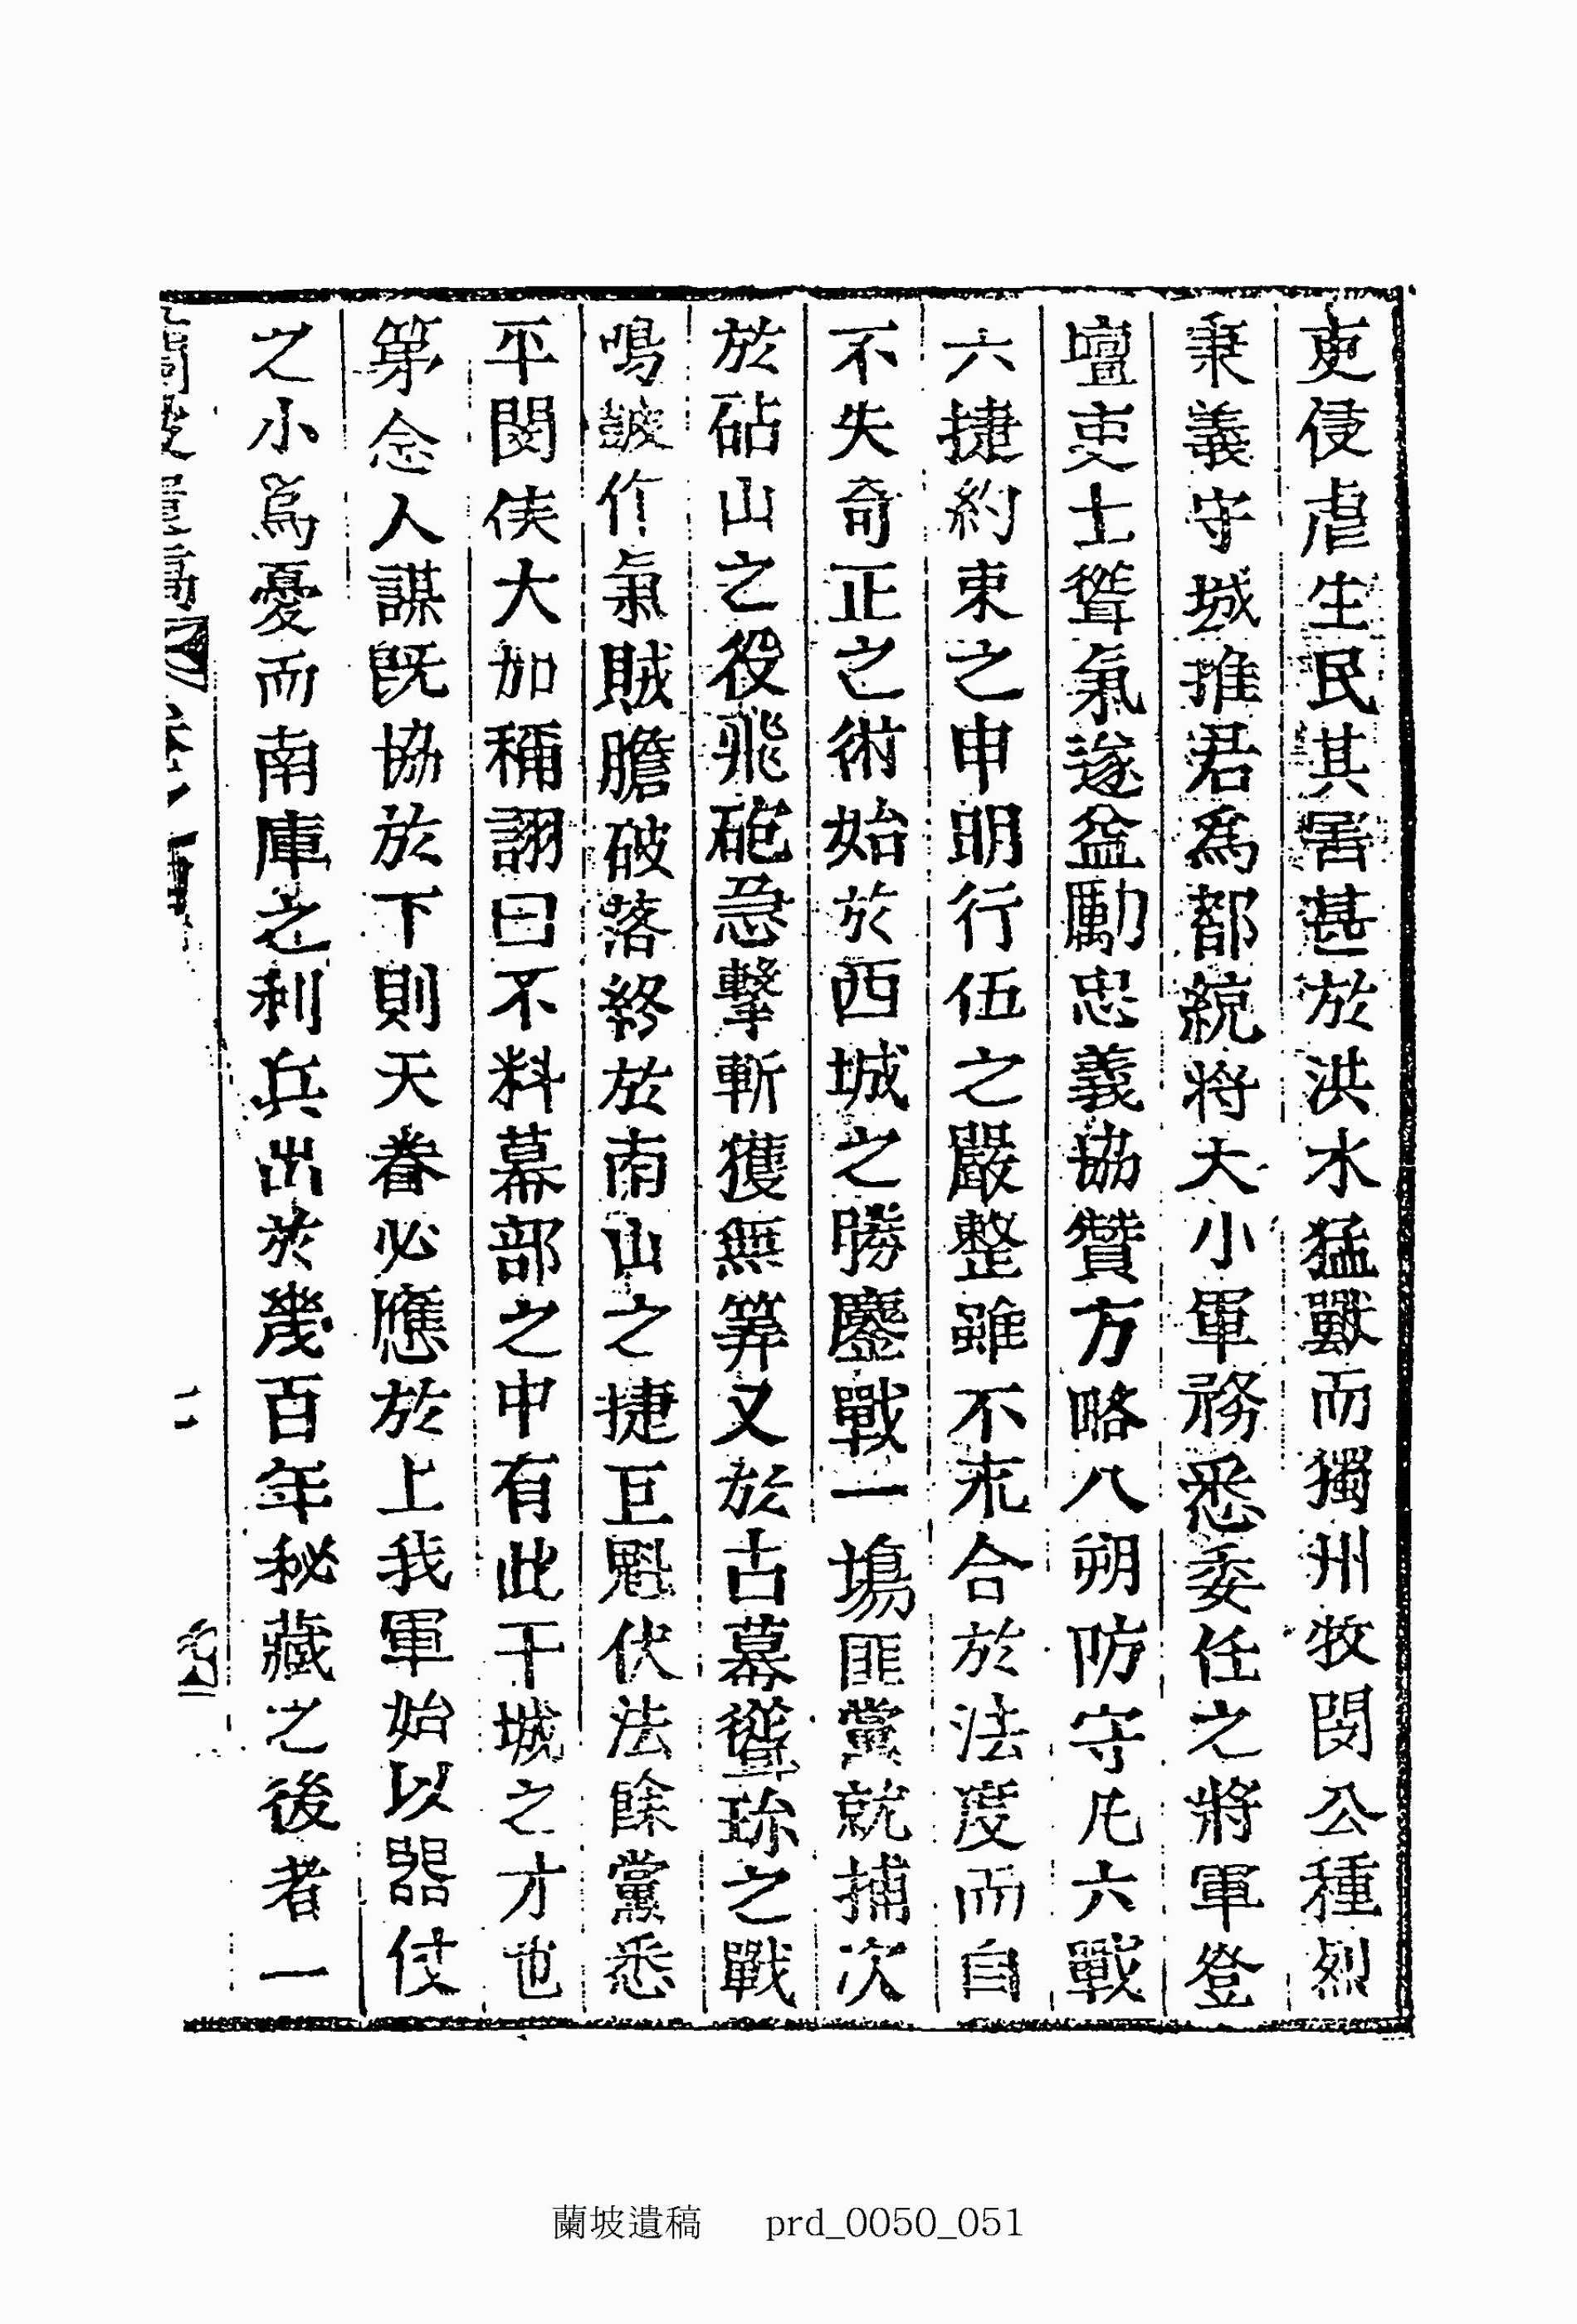 吏侵虐生民其害甚於洪水猛獸而獨州牧閔公種烈
秉義守城推君爲都統將大小軍務悉委任之將軍登
壇吏士聳氣遂益勵忠義協贊方略八朔防守凡六戰
六捷約束之申明行伍之嚴整雖不末合於法度而自
不失奇正之術始於西城之勝鏖戰一場匪黨就捕次
於砧山之役飛砲急擊斬獲無筭又於古幕聳珎之戰
鳴皷作氣賊膽破落終於南山之捷巨魁伏法餘黨悉
平閔侯大加稱詡曰不料幕部之中有此干城之才也
第念人謀旣協於下則天眷必應於上我軍始以器仗
之小爲憂而南庫之利兵出於幾百年秘藏之後者一
二
蘭坡遺稿 prd_0050_051